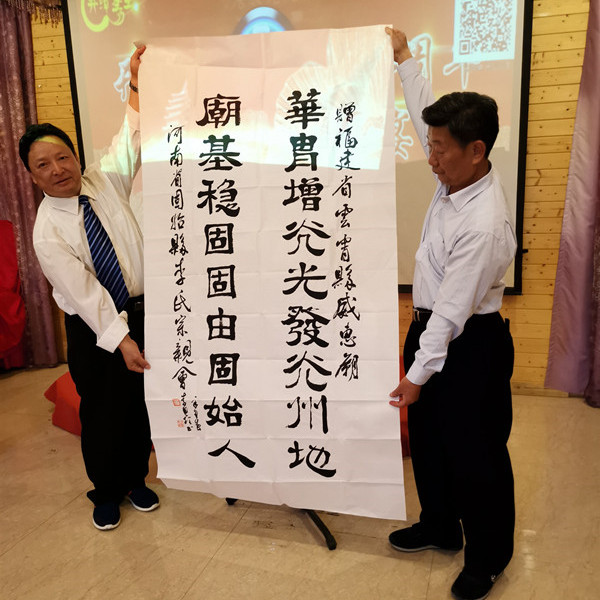 贈福建省雲霄縣威惠廟
華胄增灮光發灮州地
廟基稳固固由固始人
河南省固始縣李氏宗親會